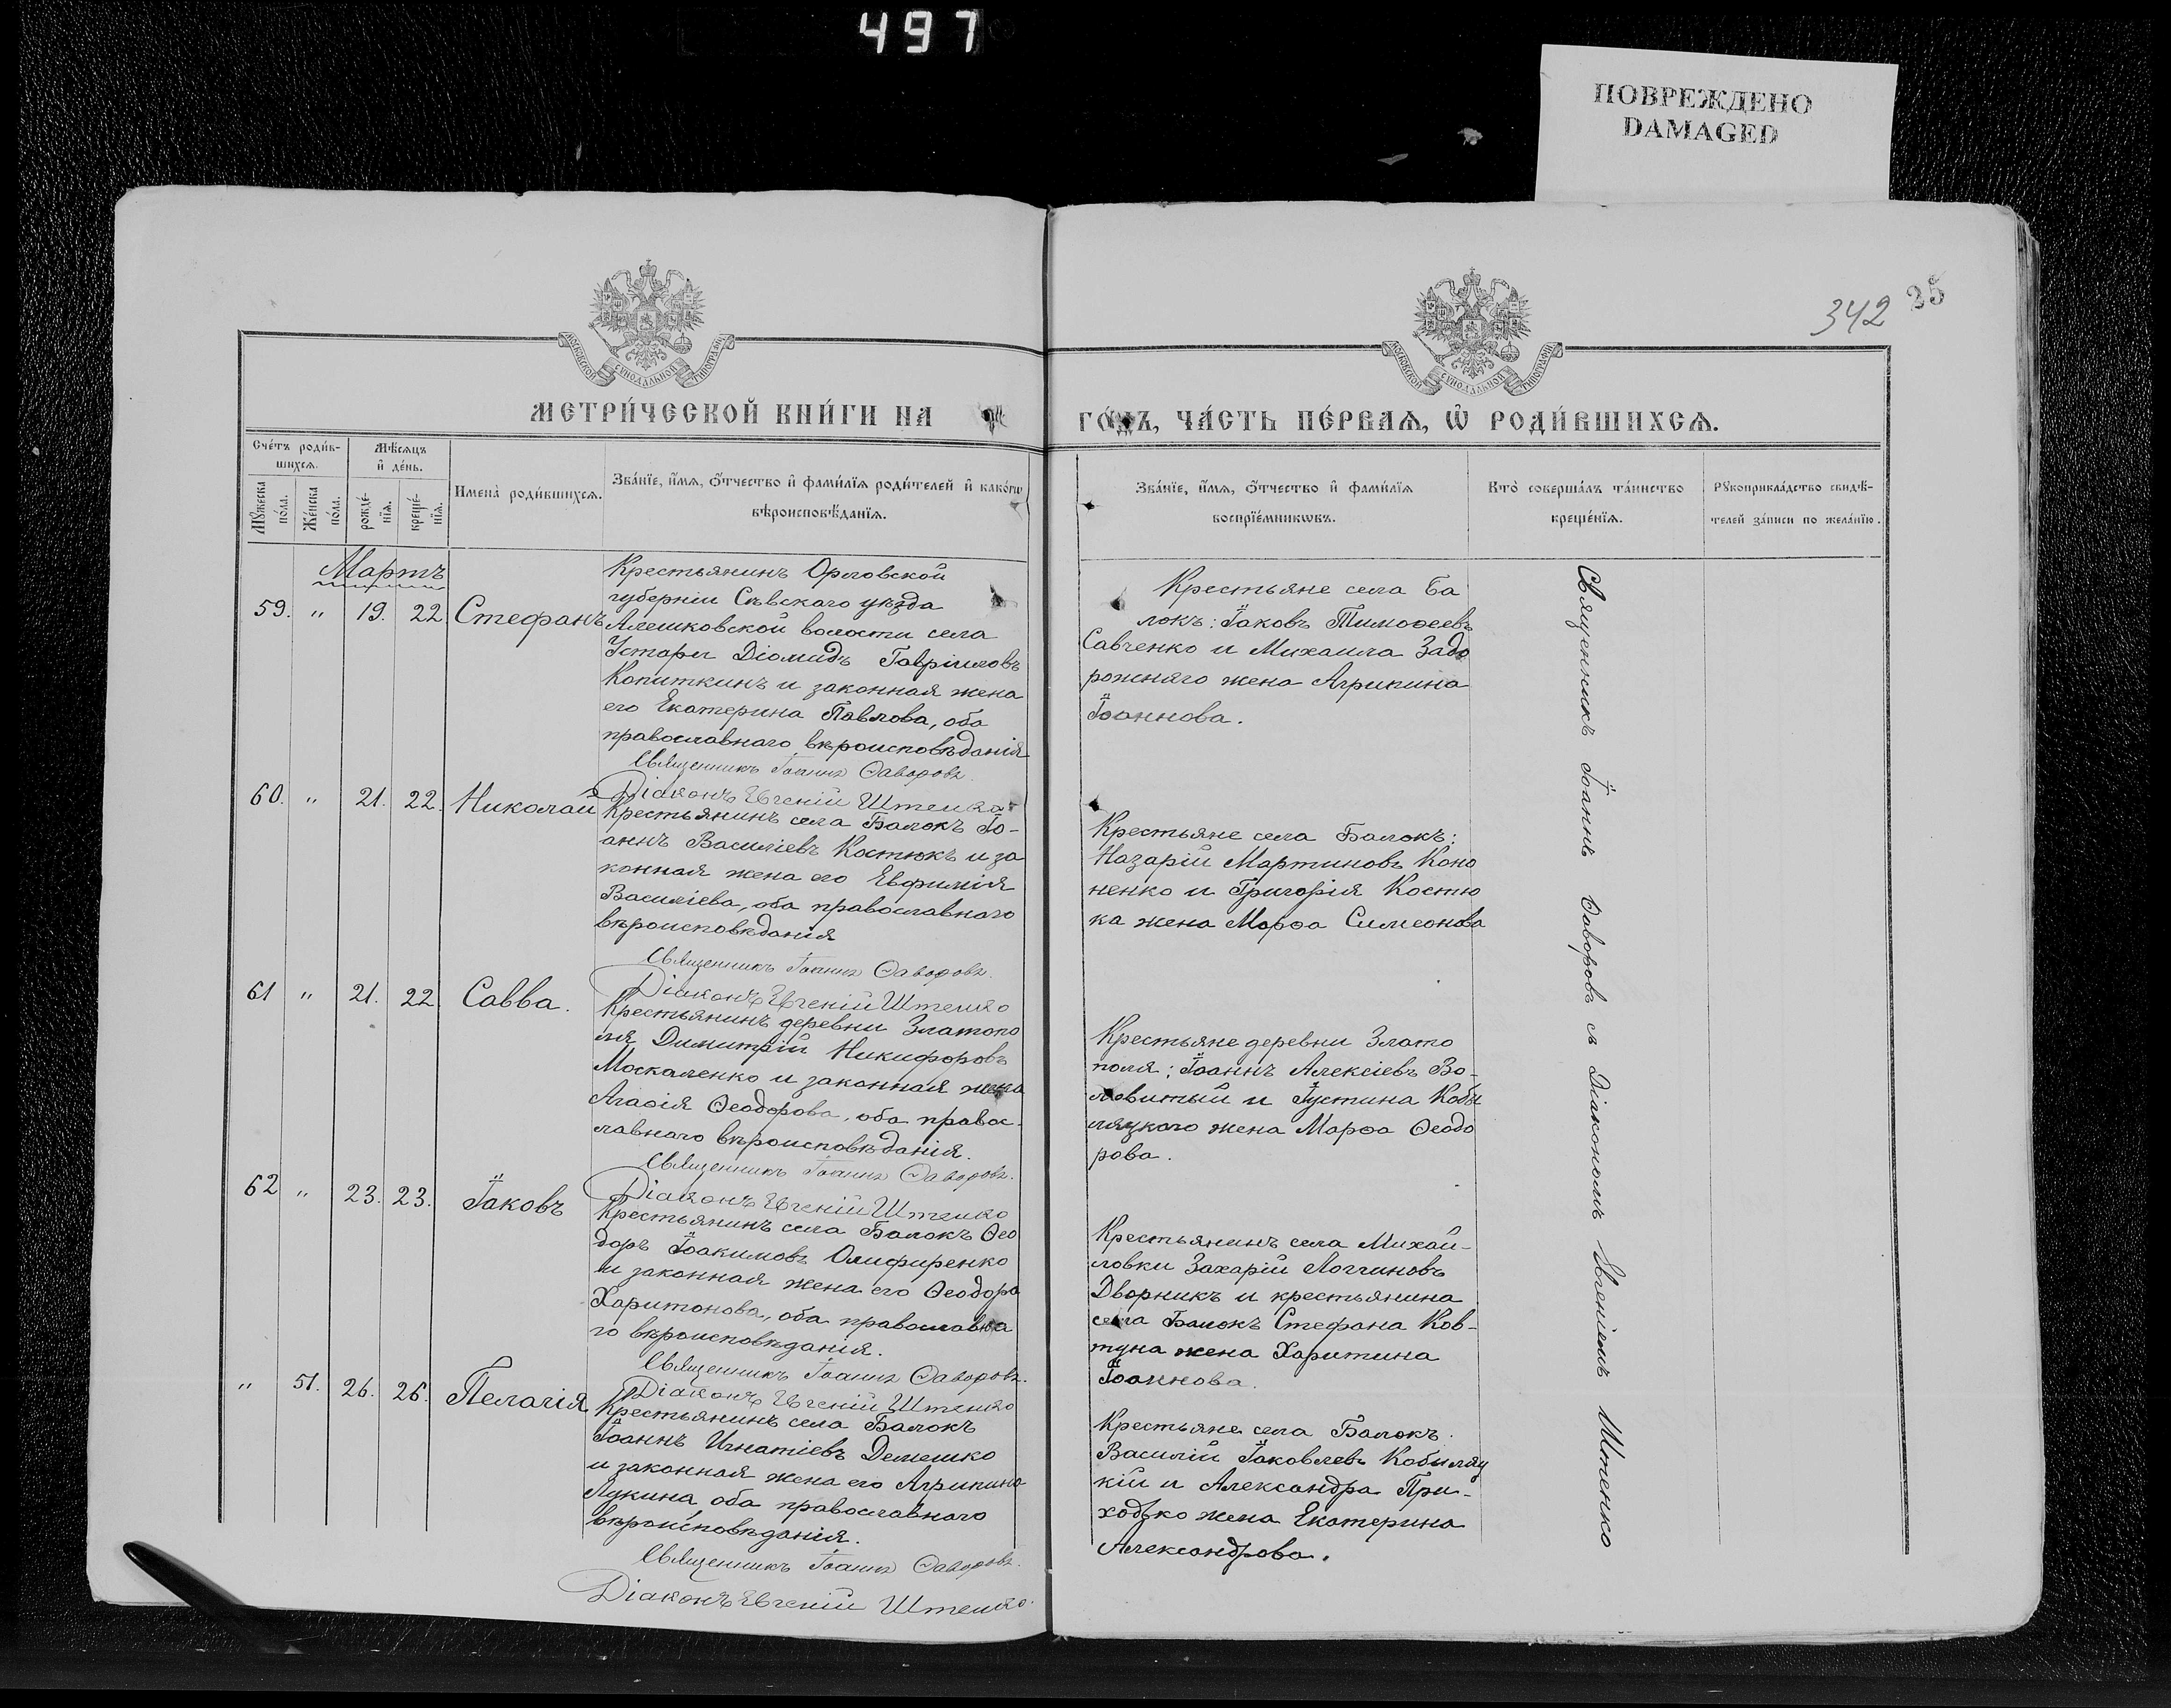 497
ПОВРЕЖДЕНО
DAMAGED
342 35
МОСКОВСКОЙ СѴНОДАЛЬНОЙ ТИПОГРАФІИ
МОСКОВСКОЙ СѴНОДАЛЬНОЙ ТИПОГРАФІИ
МЕТРИ́ЧЕСКОЙ КНИ́ГИ НА
ГО́ДЪ, ЧА́СТЬ ПЕ́РВАѦ, Ѡ҆ РОДИ́ВШИХСѦ.
Сче́тъ роди́в-
шихсѧ.
Мѣ́сѧцъ
и҆ де́нь.
Мꙋ́жеска
по́ла.
Же́нска
по́ла.
рожде́-
нїѧ.
креще́-
нїѧ.
И҆мена̀ роди́вшихсѧ.
Зва́нїе, и҆́мѧ, ѻ҆́тчество и҆ фами́лїѧ роди́телей и҆ како́гѡ
вѣроисповѣ́данїѧ.
Зва́нїе, и҆́мѧ, ѻ҆́тчество и҆ фами́лїѧ
воспрїе́мникѡвъ.
Кто̀ соверша́лъ та́инство
креще́нїѧ.
Рꙋкоприкла́дство свидѣ́-
телей за́писи по жела́нїю.
Мартъ
59. " 19. 22 Стефанъ
Крестьянинъ Орловской
губерніи Сѣвскаго уѣзда
Алешковской волости села
Устари Діомидъ Гавріиловъ
Копиткинъ и законная жена
его Екатерина Павлова, оба
православнаго вѣроисповѣданія
Священникъ Іоаннъ Ѳаворовъ.
Діаконъ Евгеній Штенко
Крестьяне села Ба
локъ: Іаковъ Тимоѳеевъ
Савченко и Михаила Задо
рожняго жена Агрипина
Іоаннова.
60. " 21. 22. Николай
Крестьянинъ села Балокъ Іо-
аннъ Василіевъ Костюкъ и за
конная жена его Евфимія
Василіева, оба православнаго
вѣроисповѣданія
Священникъ Іоаннъ Ѳаворовъ.
Діаконъ Евгеній Штенко
Крестьяне села Балокъ:
Назарій Мартиновъ Коно
ненко и Григорія Костю
ка жена Марѳа Симеонова
61 " 21. 22. Савва.
Крестьянинъ деревни Златопо
ля Димитрій Никифоровъ
Москаленко и законная жена
Агаѳія Ѳеодорова, оба правос-
лавнаго вѣроисповѣданія.
Священникъ Іоаннъ Ѳаворовъ.
Діаконъ Евгеній Штенко
Крестьяне деревни Злато
поля: Іоаннъ Алексіевъ Во-
ловитый и Іустина Кобы
ляцкаго жена Марѳа Ѳеодо
рова.
62 " 23. 23. Іаковъ
Крестьянинъ села Балокъ Ѳео
доръ Іоакимовъ Олифиренко
и законная жена его Ѳеодора
Харитонова, оба православна
го вѣроисповѣданія.
Священникъ Іоаннъ Ѳаворовъ.
Діаконъ Евгеній Штенко
Крестьянинъ села Михай-
ловки Захарій Логгиновъ
Дворникъ и крестьянина
села Балокъ Стефана Ков-
туна жена Харитина
Іоаннова.
" 51. 26. 26. Пелагія
Крестьянинъ села Балокъ
Іоаннъ Игнатіевъ Демешко
и законная жена его Агрипина
Лукина, оба православнаго
вѣроисповѣданія.
Священникъ Іоаннъ Ѳаворовъ.
Діаконъ Евгеній Штенко.
Крестьяне села Балокъ.
Василій Іаковлевъ Кобыляц
кій и Александра При-
ходько жена Екатерина
Александрова.
Священникъ Іоаннъ Ѳаворовъ съ Діакономъ Евгеніемъ Штенко